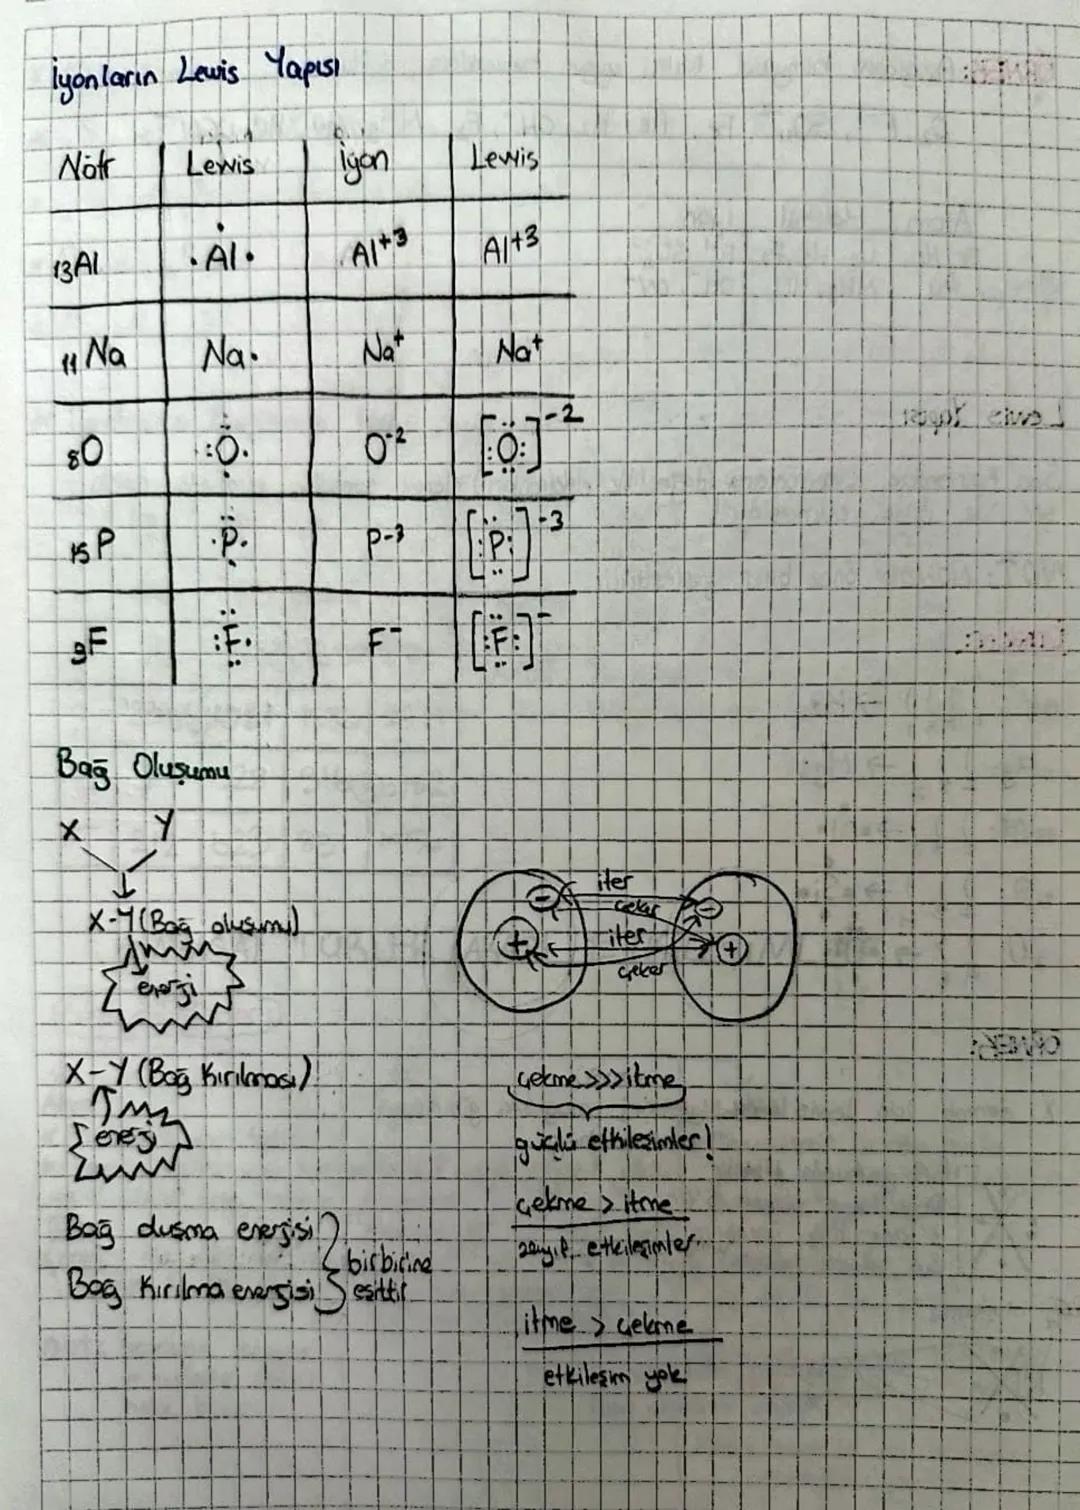 İyonların Lewis Yapısı
Nötr Lewis İyon Lewis
₁₃Al ·Al· Al⁺³ Al⁺³
₁₁Na Na· Na⁺ Na⁺
₈O :Ö· O⁻² [:Ö:]⁻²
₁₅P ·P· P⁻³ [:P:]⁻³
₉F :F· F⁻ [:F:]⁻
Bağ Oluşumu
X Y
X-Y (Bağ oluşumu)
enerji
iter
çeker
iter
çeker
X-Y (Bağ Kırılması)
enerji
Bağ oluşma enerjisi
Bağ Kırılma enerjisi
birbirine
eşittir
çekme >>> itme
güçlü etkileşimler!
çekme > itme
zayıf etkileşimler
itme > çekme
etkileşim yok